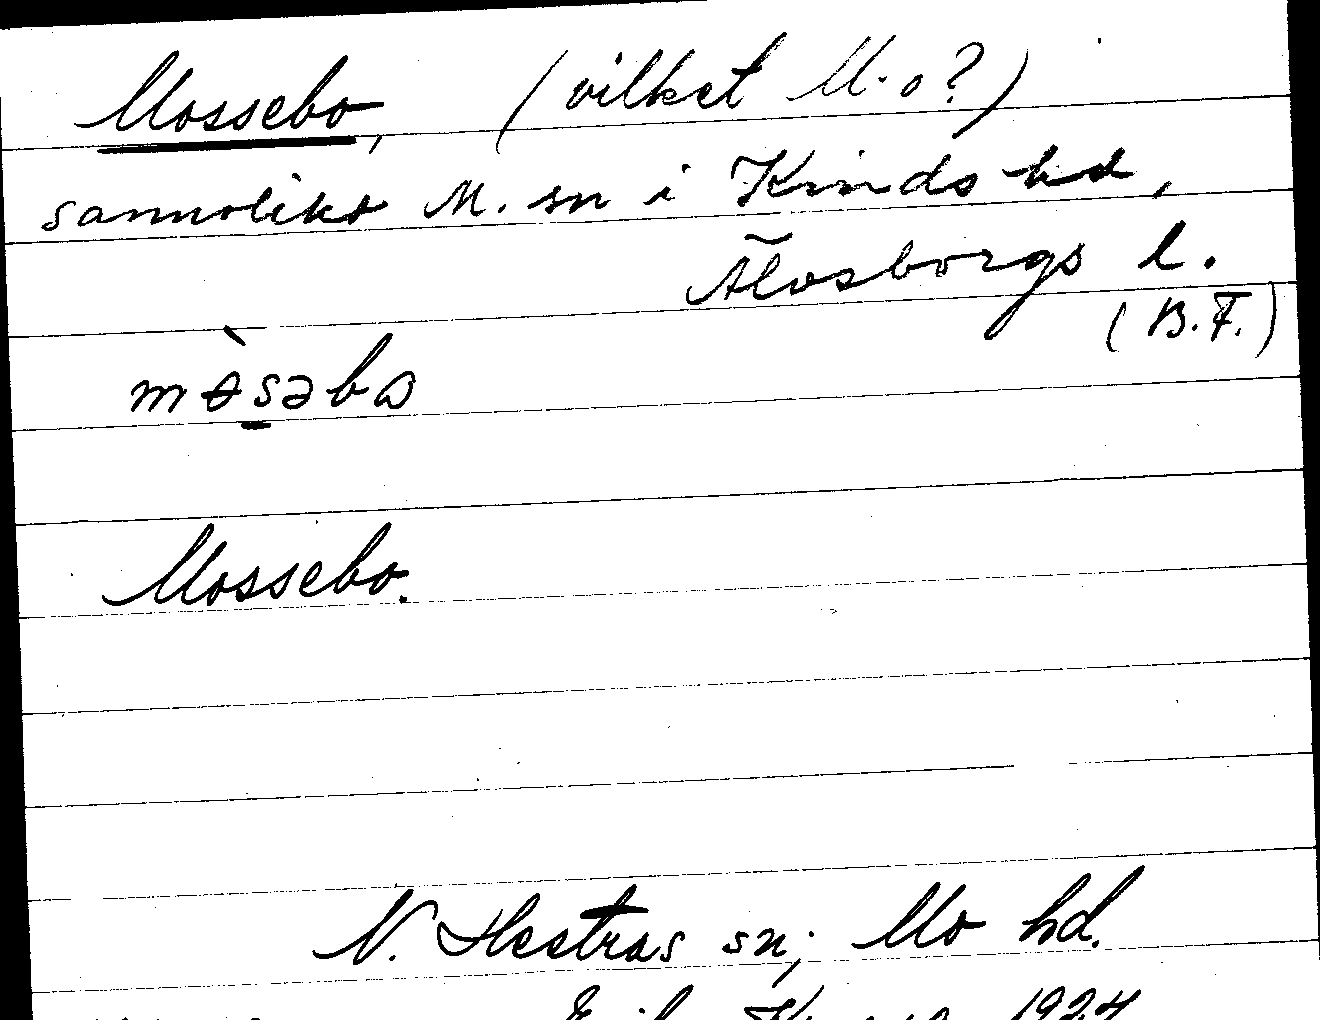 Mossebo, (vilket M-o?)
sannolikt M. sn i Kinds hd,
Älvsborgs l.
(B.F.)
mɵ̀səbɷ
Mossebo.
N. Hestras sn; Mo hd.
1924